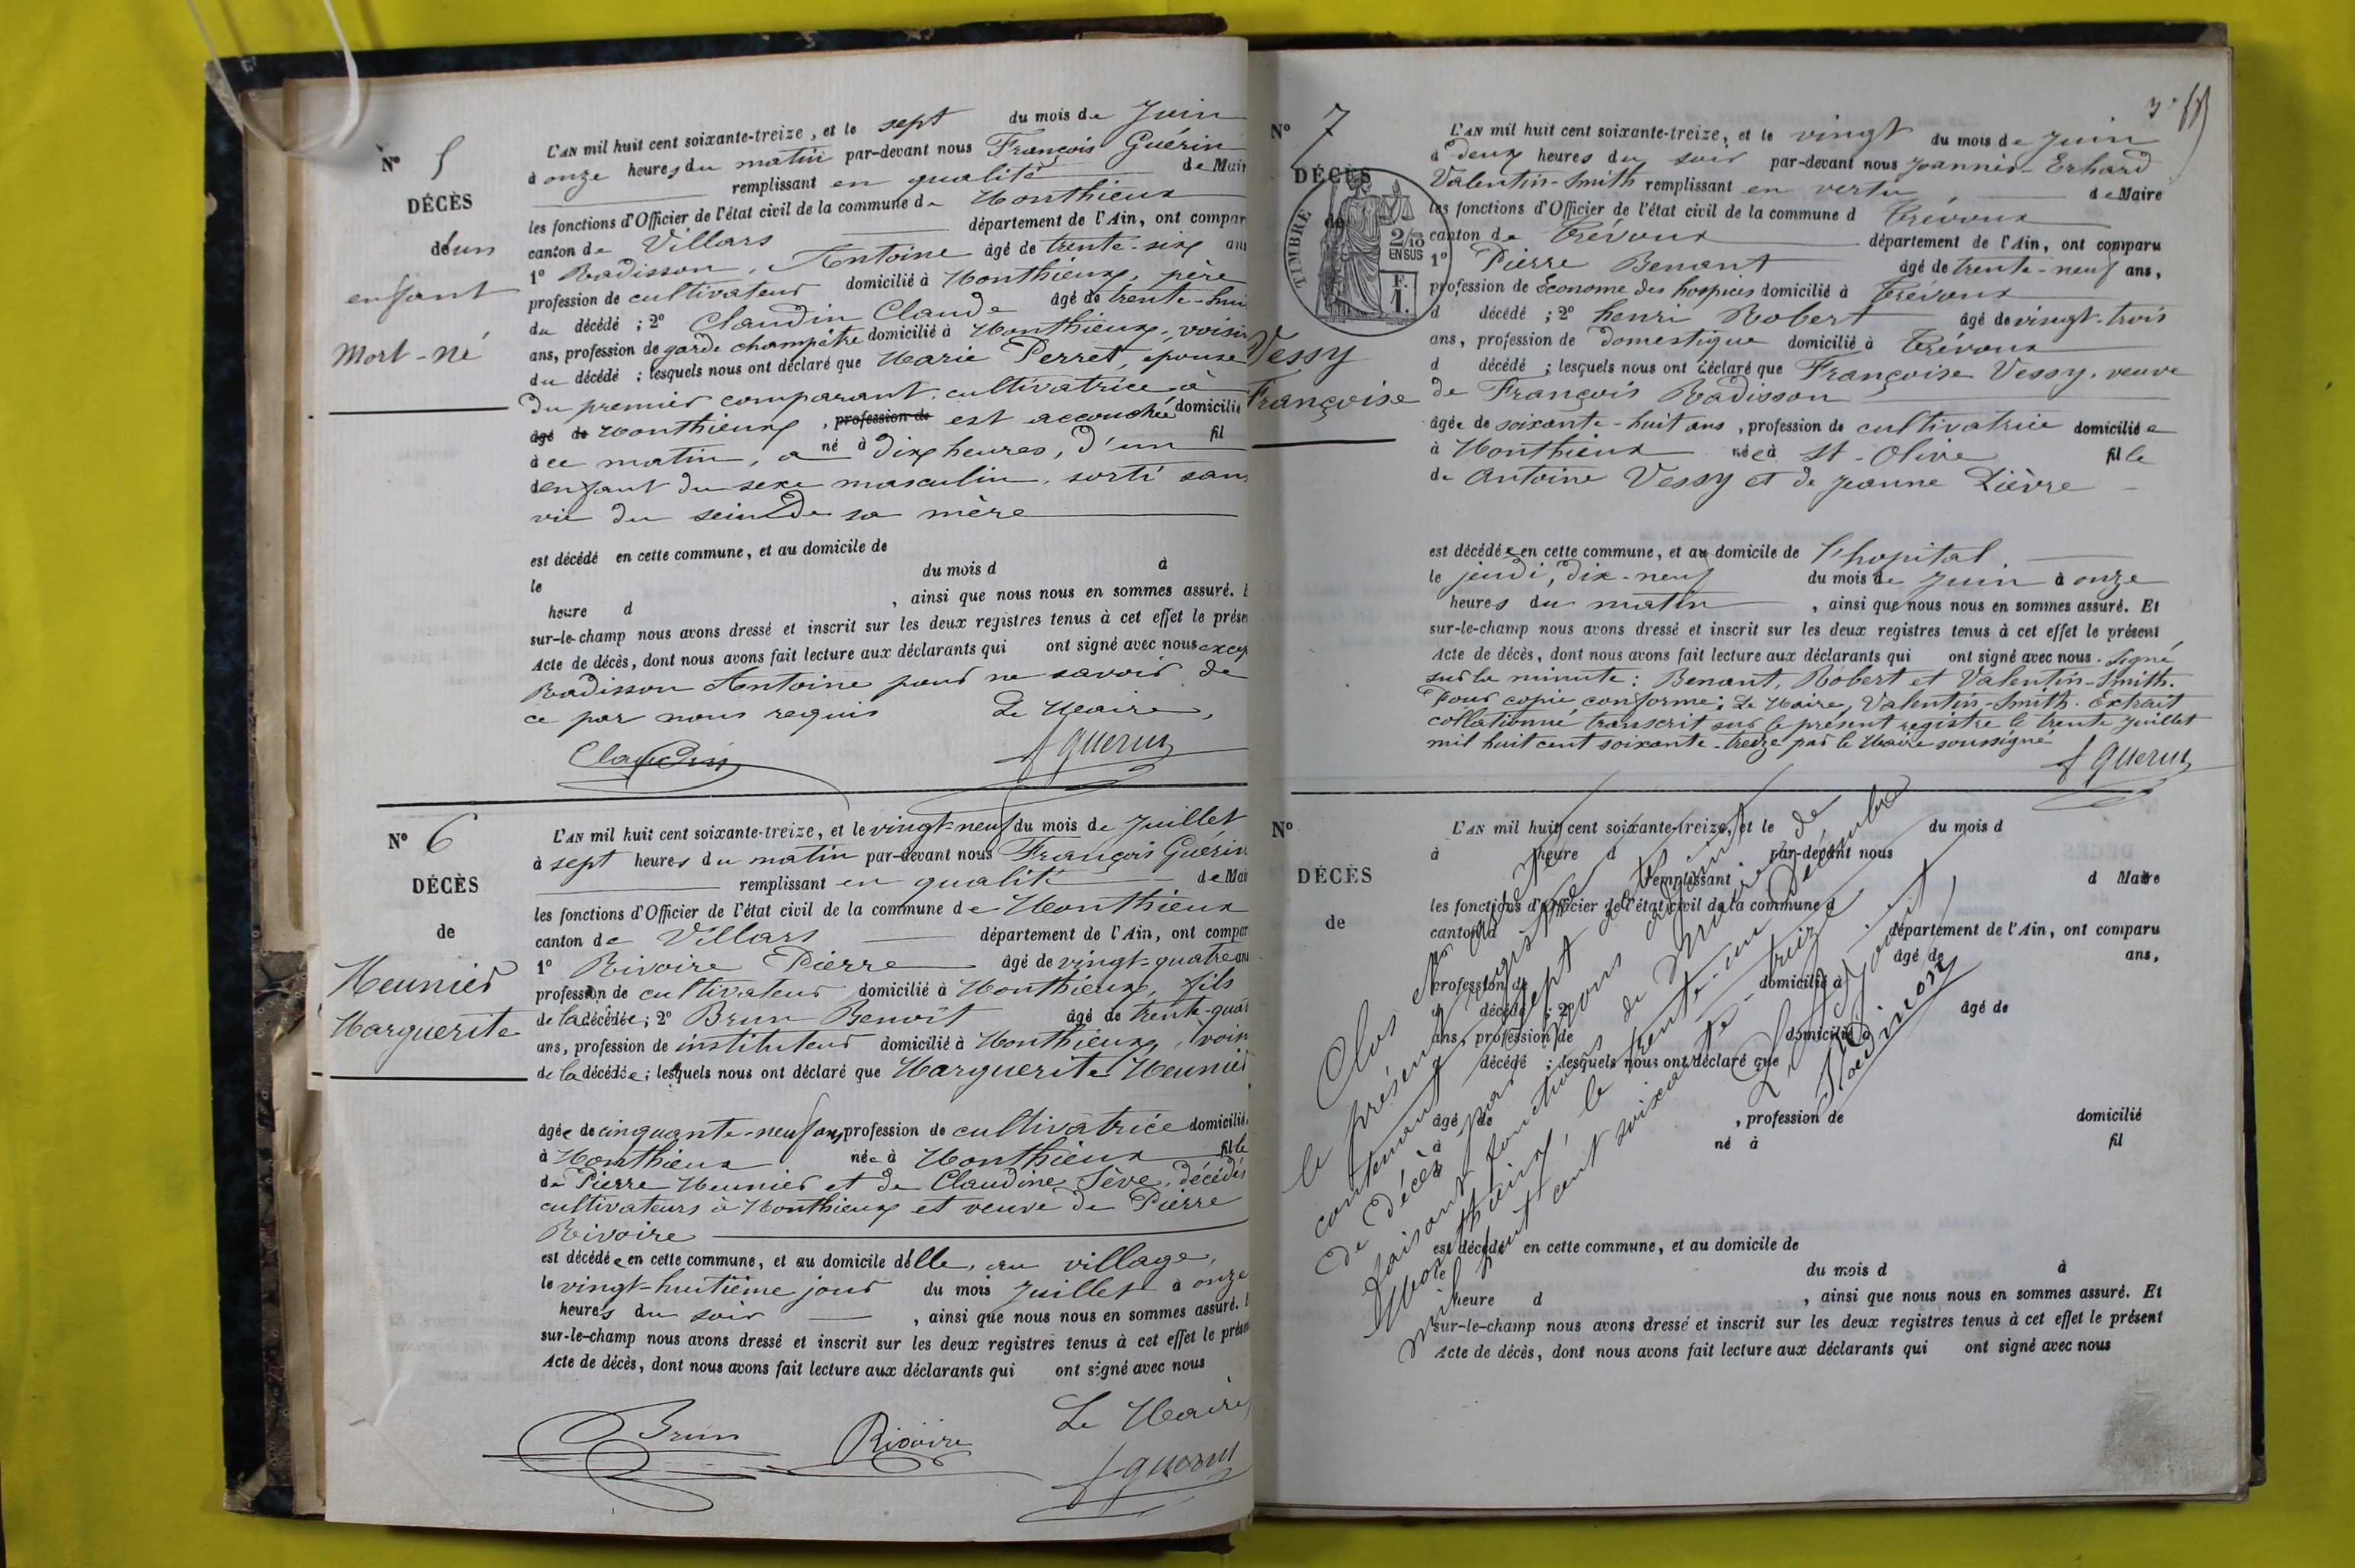 N° 5
DÉCÈS
d'un
enfant
Mort-né
L'AN mil huit cent soixante-treize, et le sept du mois de Juin
à onze heures du matin par-devant nous François Guérin
remplissant en qualité de Mair
les fonctions d'Officier de l'état civil de la commune de Monthieux
canton de Villars département de l'Ain, ont compar
1° Radisson, Antoine âgé de trente-six ans
profession de cultivateur domicilié à Monthieux, père
du décédé ; 2° Claudin Claude âgé de trente-hui
ans, profession de garde champêtre domicilié à Monthieux, voisin
du décédé ; lesquels nous ont déclaré que Marie Perret, épouse
du premier comparant, cultivatrice à
âgé de Monthieux, profession de est accouchée domicilié
à ce matin, a né à dix heures, d'un fil
d enfant du sexe masculin, sorti sans
vie du sein de sa mère
est décédé en cette commune, et au domicile de
le du mois d à
heure d , ainsi que nous nous en sommes assuré. E
sur-le-champ nous avons dressé et inscrit sur les deux registres tenus à cet effet le prése
Acte de décès, dont nous avons fait lecture aux déclarants qui ont signé avec nous excep
Radisson Antoine pour ne savoir de
ce par nous requis Le Maire,
Claudin f guerin
N° 6
DÉCÈS
de
Meunier
Marguerite
L'AN mil huit cent soixante-treize, et le vingt-neuf du mois de Juillet
à sept heures du matin par-devant nous François Guérin
remplissant en qualité de Mai
les fonctions d'Officier de l'état civil de la commune de Monthieux
canton de Villars département de l'Ain, ont compar
1° Rivoire Pierre âgé de vingt-quatre ans
profession de cultivateur domicilié à Monthieux, fils
de la décédée ; 2° Brun Benoit âgé de trente-quat
ans, profession de instituteur domicilié à Monthieux, voisin
de la décédée ; lesquels nous ont déclaré que Marguerite Meunier
âgée de cinquante-neuf ans, profession de cultivatrice domicilié
à Monthieux née à Monthieux fille
de Pierre Meunier et de Claudine Sève, décédés
cultivateurs à Monthieux et veuve de Pierre
Rivoire
est décédée en cette commune, et au domicile d'elle, au village,
le vingt-huitième jour du mois Juillet à onze
heures du soir , ainsi que nous nous en sommes assuré. E
sur-le-champ nous avons dressé et inscrit sur les deux registres tenus à cet effet le prése
Acte de décès, dont nous avons fait lecture aux déclarants qui ont signé avec nous
Le Maire,
Brun Rivoire f guerin
N° 7
DÉCÈS
de
TIMBRE
2/10
EN SUS
F.
1.
Vessy
Françoise
L'AN mil huit cent soixante-treize, et le vingt du mois de Juin
à deux heures du soir par-devant nous Joannès-Erhard
Valentin-Smith remplissant en vertu de Maire
les fonctions d'Officier de l'état civil de la commune d Trévoux
canton de Trévoux département de l'Ain, ont comparu
1° Pierre Benant âgé de trente-neuf ans,
profession de Econome des hospices domicilié à Trévoux
d décédé ; 2° henri Robert âgé de vingt-trois
ans, profession de domestique domicilié à Trévoux
d décédé ; lesquels nous ont déclaré que Françoise Vessy, veuve
de François Radisson
âgée de soixante-huit ans, profession de cultivatrice domiciliée
à Monthieux née à St-Olive fille
de Antoine Vessy et de Jeanne Lièvre
est décédée en cette commune, et au domicile de l'hopital.
le jeudi, dix-neuf du mois de Juin à onze
heures du matin , ainsi que nous nous en sommes assuré. Et
sur-le-champ nous avons dressé et inscrit sur les deux registres tenus à cet effet le présent
Acte de décès, dont nous avons fait lecture aux déclarants qui ont signé avec nous. Signé
sur la minute : Benant, Robert et Valentin-Smith.
Pour copie conforme : Le Maire, Valentin-Smith. Extrait
collationné transcrit sur le présent registre le trente Juillet
mil huit cent soixante-treize par le Maire soussigné
f guerin
N°
DÉCÈS
de
L'AN mil huit cent soixante-treize, et le du mois d
à heure d par-devant nous
remplissant d Maire
les fonctions d'Officier de l'état civil de la commune d
canton d département de l'Ain, ont comparu
âgé de ans,
profession de domicilié à
d décédé ; 2° âgé de
ans, profession de domicilié à
décédé ; lesquels nous ont déclaré que
âgé de , profession de domicilié
à né à fil
est décédé en cette commune, et au domicile de
le du mois d à
heure d , ainsi que nous nous en sommes assuré. Et
sur-le-champ nous avons dressé et inscrit sur les deux registres tenus à cet effet le présent
Acte de décès, dont nous avons fait lecture aux déclarants qui ont signé avec nous
Clos et arrêté
le présent registre
contenant sept actes
de décès par nous adjoint
faisant fonctions de Maire de
Monthieux, le trente-un Décembre
mil huit cent soixante-treize
L'adjoint